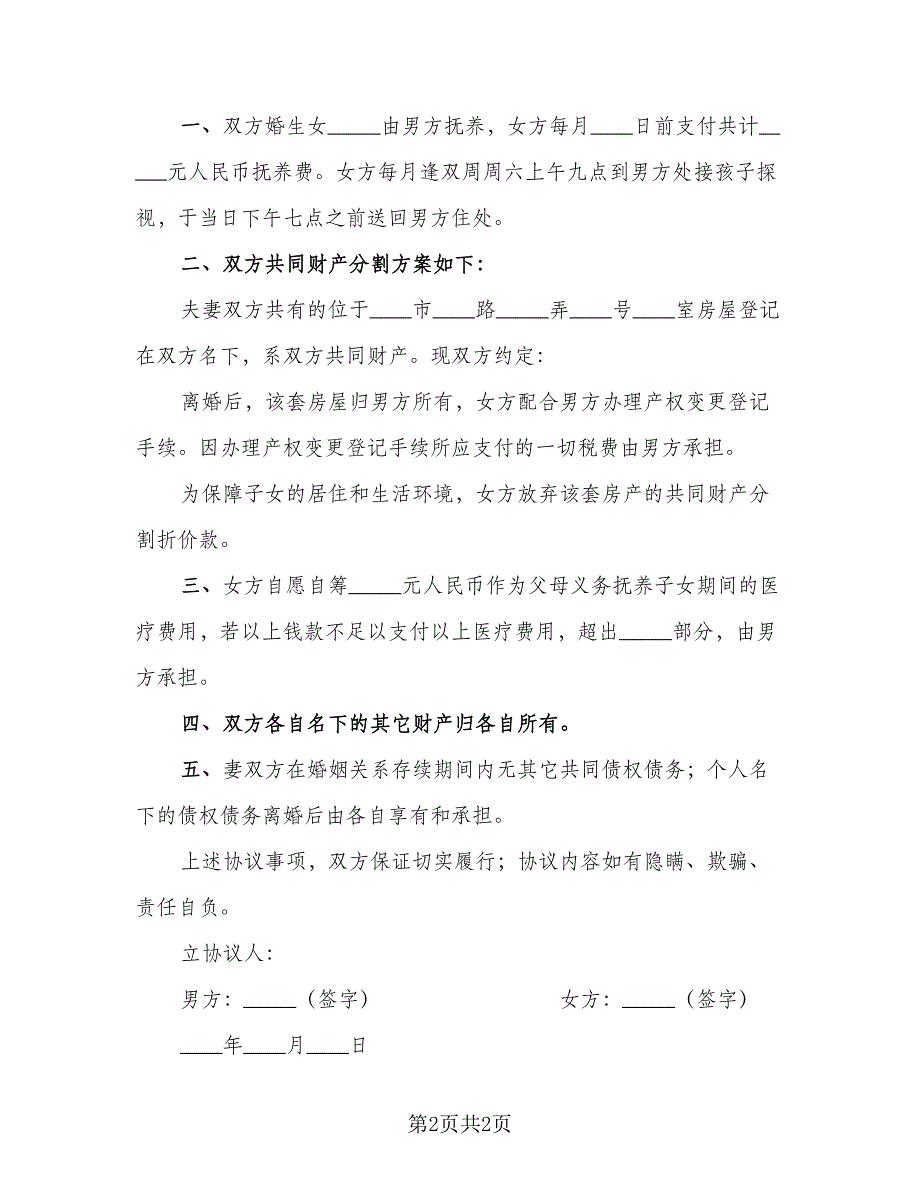 一、双方婚生女_____由男方抚养，女方每月____日前支付共计__
___元人民币抚养费。女方每月逢双周周六上午九点到男方处接孩子探
视，于当日下午七点之前送回男方住处。
二、双方共同财产分割方案如下：
夫妻双方共有的位于____市____路_____弄____号____室房屋登记
在双方名下，系双方共同财产。现双方约定：
离婚后，该套房屋归男方所有，女方配合男方办理产权变更登记
手续。因办理产权变更登记手续所应支付的一切税费由男方承担。
为保障子女的居住和生活环境，女方放弃该套房产的共同财产分
割折价款。
三、女方自愿自筹_____元人民币作为父母义务抚养子女期间的医
疗费用，若以上钱款不足以支付以上医疗费用，超出_____部分，由男
方承担。
四、双方各自名下的其它财产归各自所有。
五、妻双方在婚姻关系存续期间内无其它共同债权债务；个人名
下的债权债务离婚后由各自享有和承担。
上述协议事项，双方保证切实履行；协议内容如有隐瞒、欺骗、
责任自负。
立协议人：
男方：_____（签字） 女方：_____（签字）
____年____月____日
第2页共2页